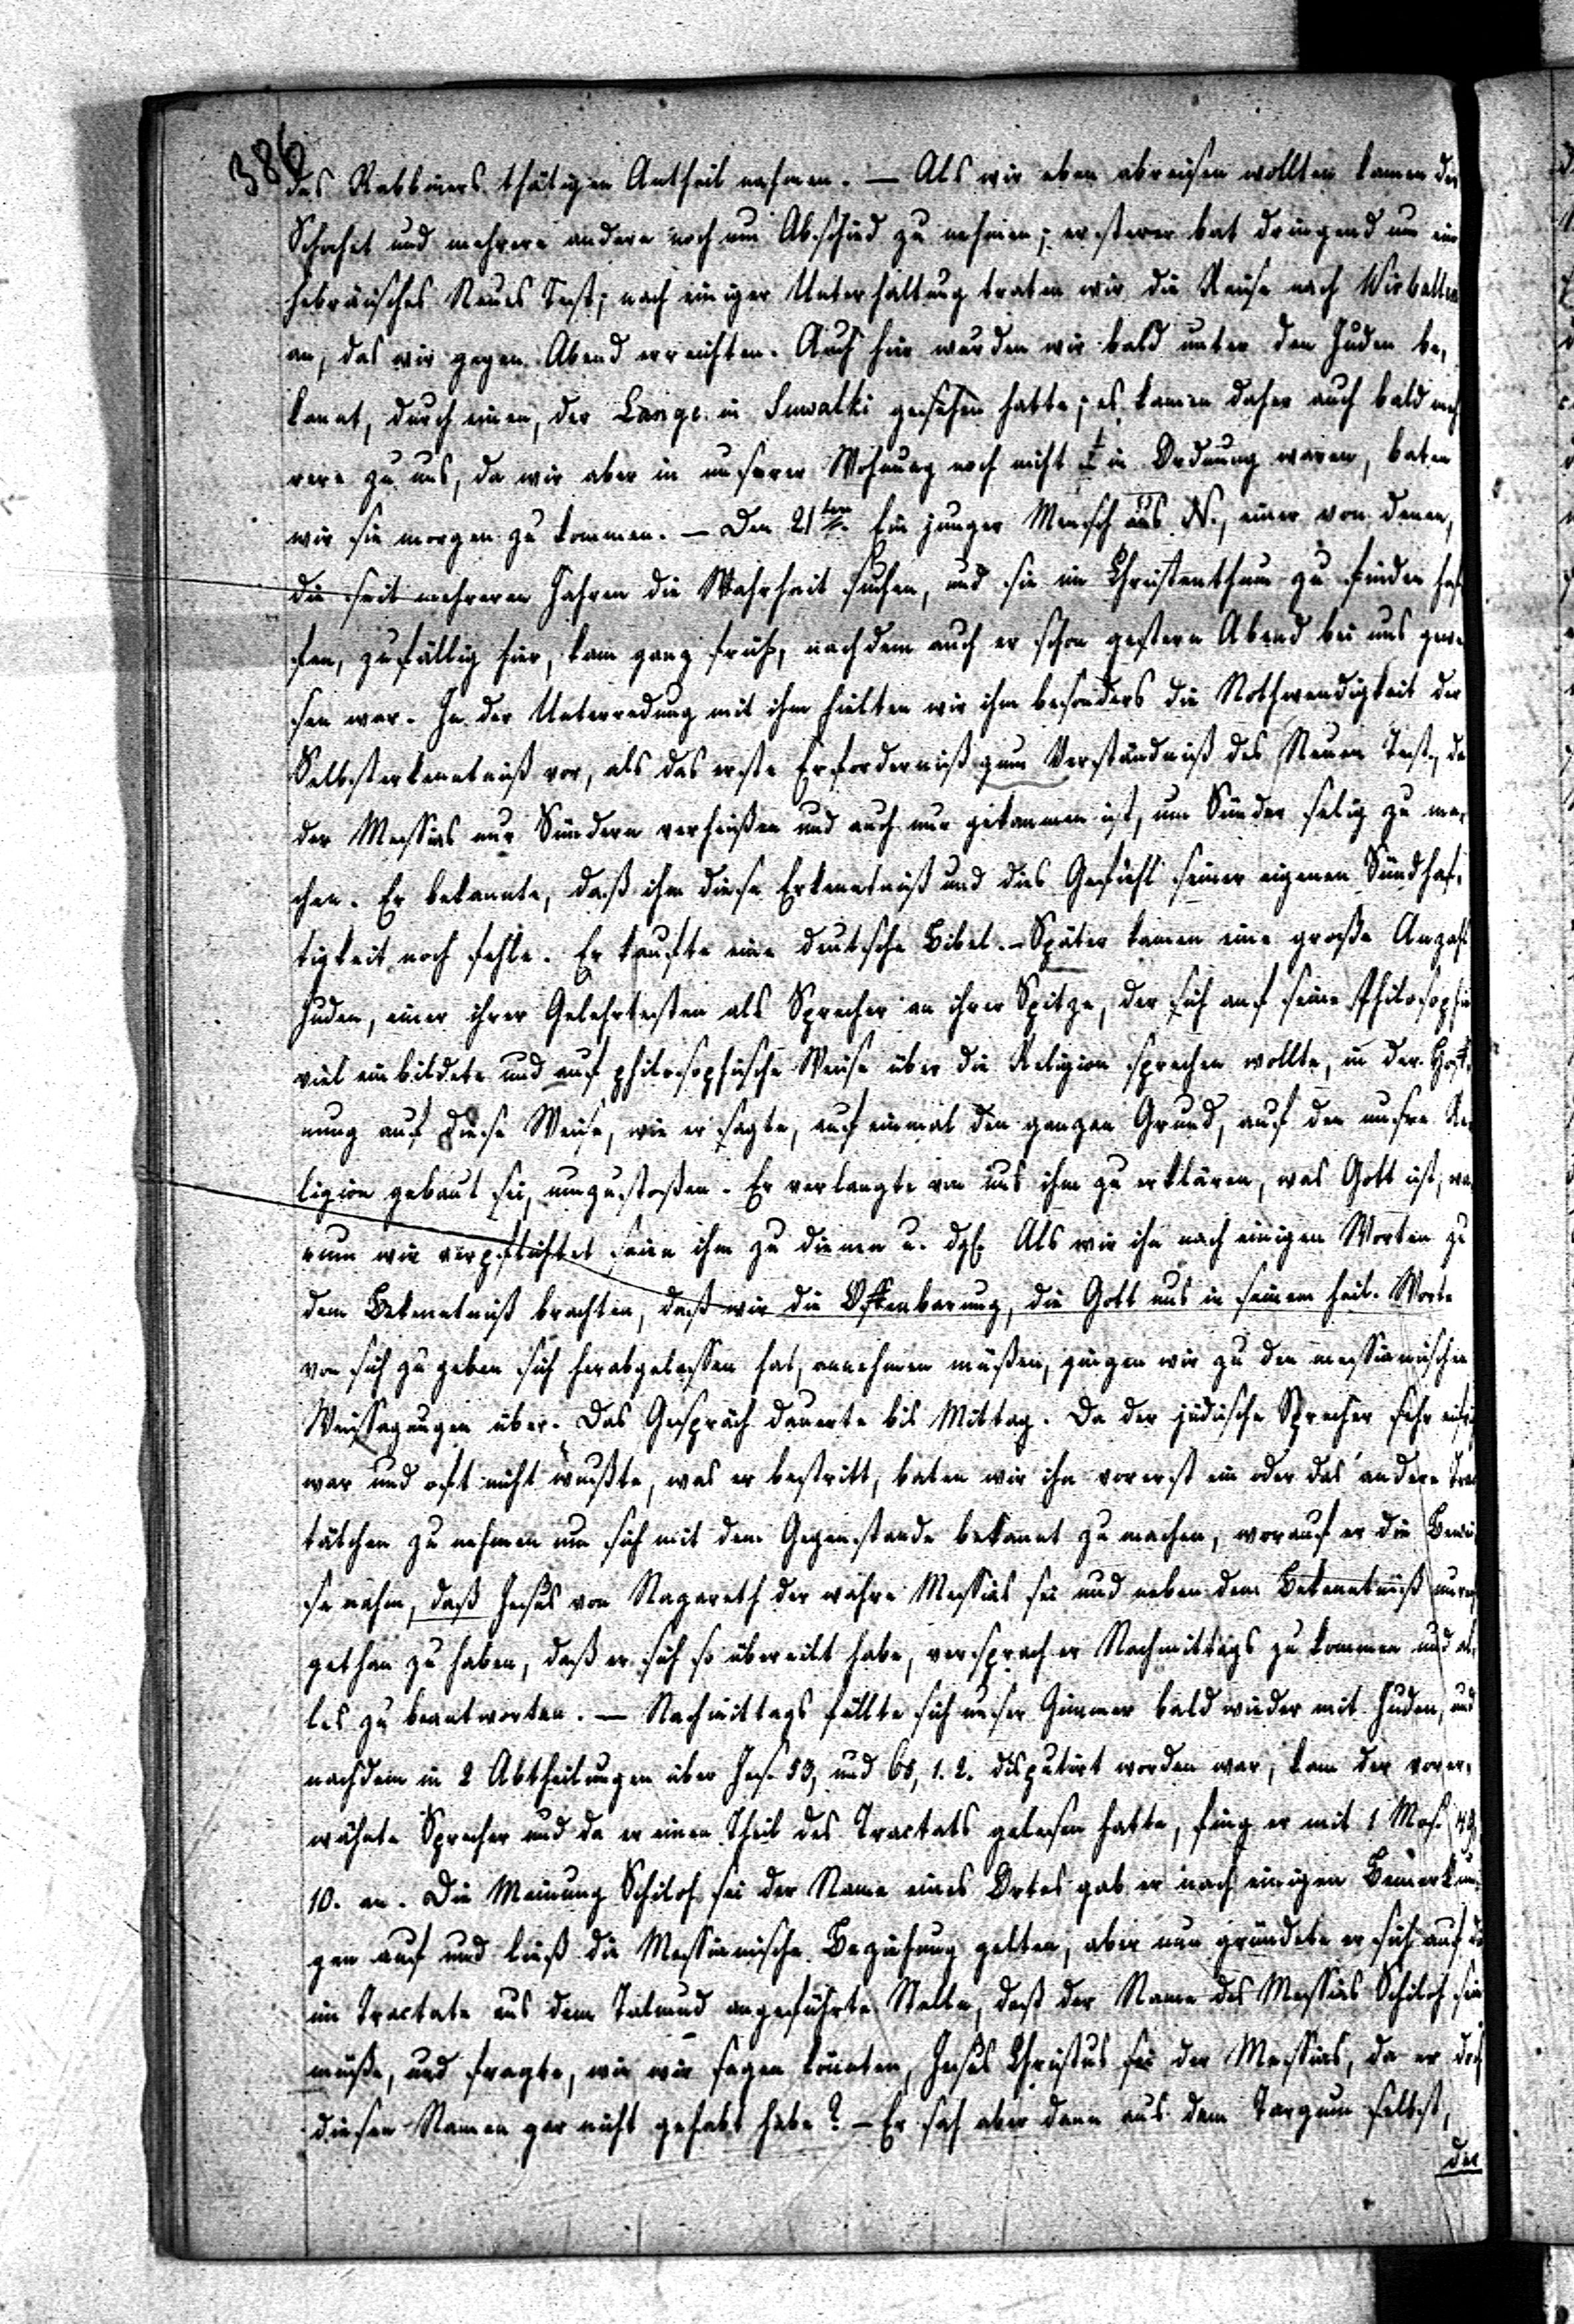 386
des Rabbiners thätigen Antheil nahmen. — Als wir eben abreisen wollten kamen der
Schochet und mehrere andere noch um Abschied zu nehmen; ersterer bat dringend um ein
hebräisches Neues Test; nach einiger Unterhaltung traten wir die Reise nach Wirballen
an, das wir gegen Abend erreichten. Auch hier wurden wir bald unter den Juden be,
kannt, durch einen, der Lange in Suwalki gesehen hatte; es kamen daher auch bald meh
rere zu uns, da wir aber in unserer Wohnung noch nicht in Ordnung waren, baten
wir sie morgen zu kommen. — Den 21ten. Ein junger Mensch aus N., einer von denen,
die seit mehreren Jahren die Wahrheit suchen, und sie im Christenthum zu finden hof
fen, zufällig hier, kam ganz früh, nachdem auch er schon gestern Abend bei uns gewe
sen war. In der Unterredung mit ihm hielten wir ihm besonders die Nothwendigkeit der
Selbsterkenntniß vor, als das erste Erforderniß zum Verständniß des Neuen Test., da
der Messias nur Sündern verheißen und auch nur gekommen ist, um Sünder selig zu ma,
chen. Er bekannte, daß ihm diese Erkenntniß und dies Gefühl seiner eigenen Sündhaf,
tigkeit noch fehle. Er kaufte eine deutsche Bibel. — Später kamen eine große Anzahl
Juden, einer ihrer Gelehrtesten als Sprecher an ihrer Spitze, der sich auf seine Philosophie
viel einbildete und auf philosophische Weise über die Religion sprechen wollte, in der Hoff,
nung auf diese Weise, wie er sagte, auf einmal den ganzen Grund, auf den unsre Re
ligion gebaut sei, umzustoßen. Er verlangte von uns ihm zu erklären, was Gott ist, wa
rum wir verpflichtet seien ihm zu dienen u. dgl. Als wir ihn nach einigen Worten zu
dem Bekenntniß brachten, daß wir die Offenbarung, die Gott uns in seinem heil. Worte
von sich zu geben sich herabgelassen hat, annehmen müßen, gingen wir zu den messianischen
Weissagungen über. Das Gespräch dauerte bis Mittag. Da der jüdische Sprecher sehr eifrig
war und oft nicht wußte, was er bestritt, baten wir ihn vorerst ein oder das andere Trac
tätchen zu nehmen um sich mit dem Gegenstande bekannt zu machen, worauf er die Bewei,
se nahm, daß Jesus von Nazareth der wahre Messias sei und neben dem Bekenntniß unrecht
gethan zu haben, daß er sich so übereilt habe, versprach er Nachmittags zu kommen und al,
les zu beantworten. — Nachmittags füllte sich unser Zimmer bald wieder mit Juden, und
nachdem in 2 Abtheilungen über Jes. 53, und 61, 1. 2. disputirt worden war, kam der vorer,
wähnte Sprecher und da er einen Theil des Tractats gelesen hatte, fing er mit 1 Mos. 49,
10. an. Die Meinung Schiloh sei der Name eines Ortes gab er nach einigen Bemerkun,
gen auf und ließ die Messianische Beziehung gelten, aber nun gründete er sich auf die
im Tractate aus dem Talmud angeführte Stelle, daß der Name des Messias Schiloh sein
müße, und fragte, wie wir sagen könnten, Jesus Christus sei der Messias, da er doch
diesen Namen gar nicht gehabt habe? — Er sah aber dann aus dem Targum selbst,
der